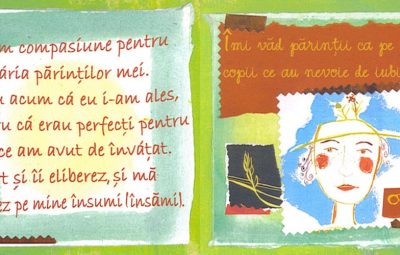 m compasiune pentru
ária părinților mei.
u acum cá eu i-am ales,
ru cá erau perfecți pentru
ce am avut de învățat.
t și îi eliberez, și mă
ez pe mine însumi (însămi).
Îmi văd părinții ca pe
copii ce au nevoie de iubi